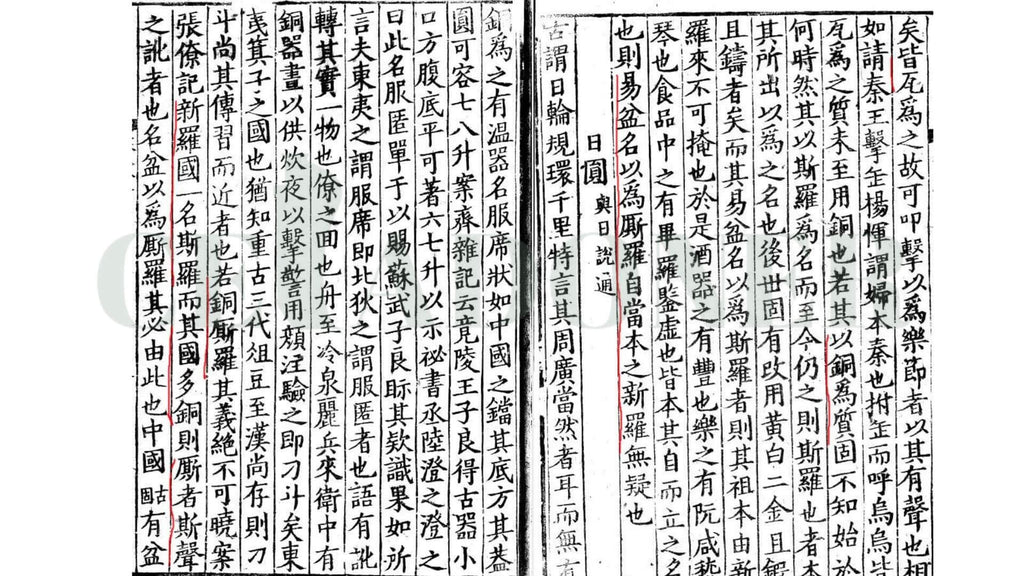 矣皆瓦爲之故可叩擊以爲樂節者以其有聲也相
如請秦王擊缶楊惲謂婦本秦也拊缶而呼烏烏皆
瓦爲之質未至用銅也若其以銅爲質固不知始於
何時然其以斯羅爲名而至今仍之則斯羅也者本
其所出以爲之名也後世固有改用黃白二金且鍛
且鑄者矣而其易盆名以爲斯羅者則其祖本由新
羅來不可掩也於是酒器之有豐也樂之有阮咸嵇
琴也食品中之有畢羅虛也皆本其自而立之名
也則易盆名以爲厮羅自當本之新羅無疑也
日圓 與日說通
古謂日輪規環千里特言其周廣當然者耳而無有
銅爲之有溫器名服席狀如中國之鐺其底方其蓋
圓可容七八升案齊雜記云竟陵王子良得古器小
口方腹底平可著六七升以示祕書丞陸澄之澄之
曰此名服匿單于以賜蘇武子良眎其欵識果如所
言夫東夷之謂服席即北狄之謂服匿者也語有訛
轉其實一物也僚之回也舟至冷泉麗兵來衛中有
銅器晝以供炊夜以擊警用頮汪驗之即刁斗矣東
夷箕子之國也猶知重古三代俎豆至漢尚存則刁
斗尚其傳習而近者也若銅厮羅其義絕不可曉案
張僚記新羅國一名斯羅而其國多銅則厮者斯聲
之訛者也名盆以爲厮羅其必由此也中國古固有盆